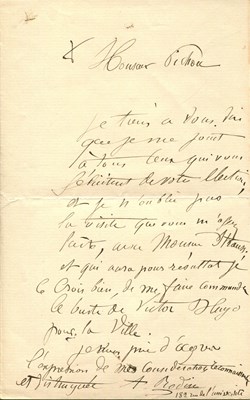 Monsieur Pichon
je tiens à vous dire
que je me joint
à tous ceux qui vous
félicitent de votre élection,
et je n'oublie pas
la visite que vous m'avez
faite, avec Monsieur
et qui aura pour résultat je
le crois bien, de me faire commander
le buste de Victor Hugo
pour la Ville.
je vous prie d'agréer
l'expression de ma considération
et distinguée A Rodin
182 rue de l'université